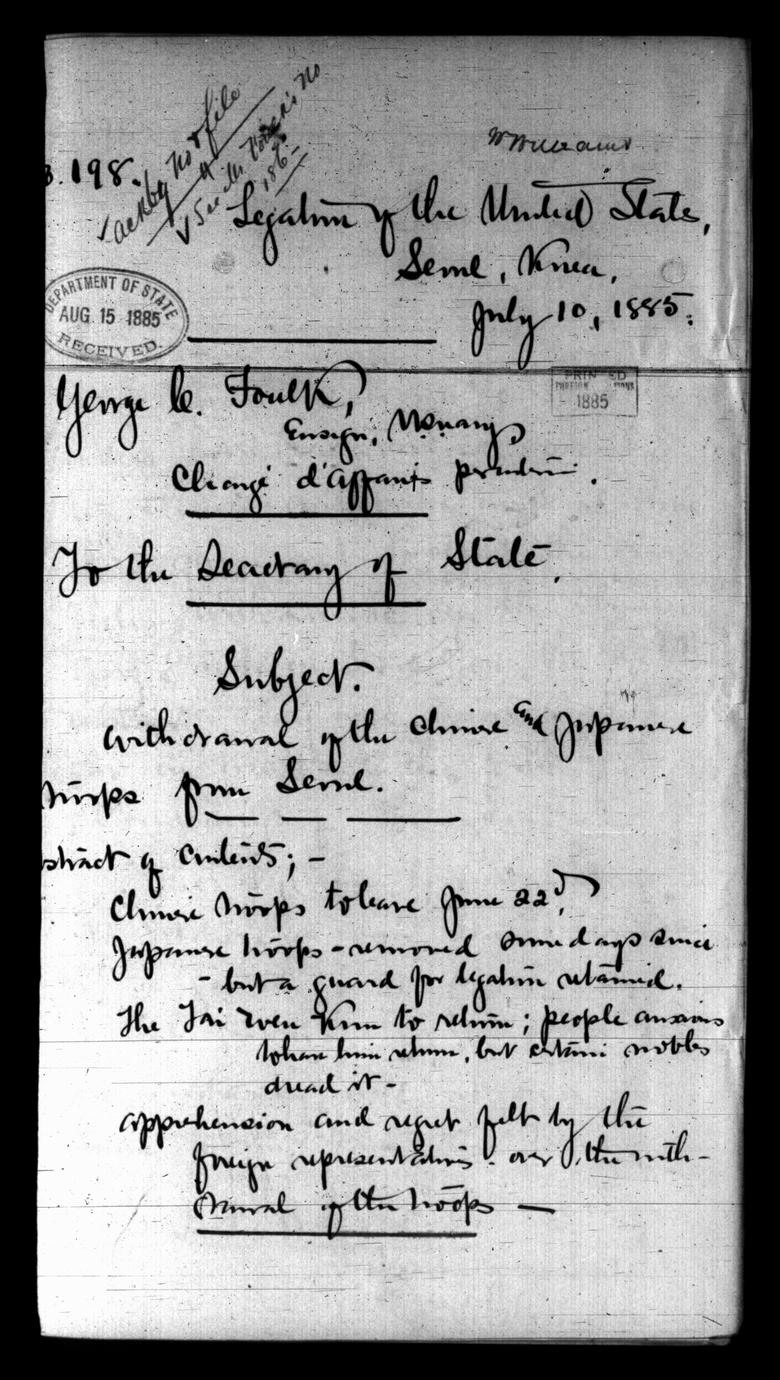 198.
ackby no & file
See
186-
Legation of the United States,
Seoul, Korea,
July 10, 1885.
DEPARTMENT OF STATE
AUG. 15 1885
RECEIVED.
PRINTED
1885
George C. Foulk,
Ensign,
Chargé d'Affaires
To the Secretary of State.
Subject.
Withdrawal of the Chinese and Japanese
troops from Seoul.
stract of contents; -
Chinese troops to leave June 22d,
Japanese troops - removed some days since
- but a guard for legation retained.
The Tai Wen Kun to return; people anxious
to have him return, but certain nobles
dread it -
apprehension and regret felt by the
foreign representatives over the with-
drawal of the troops —